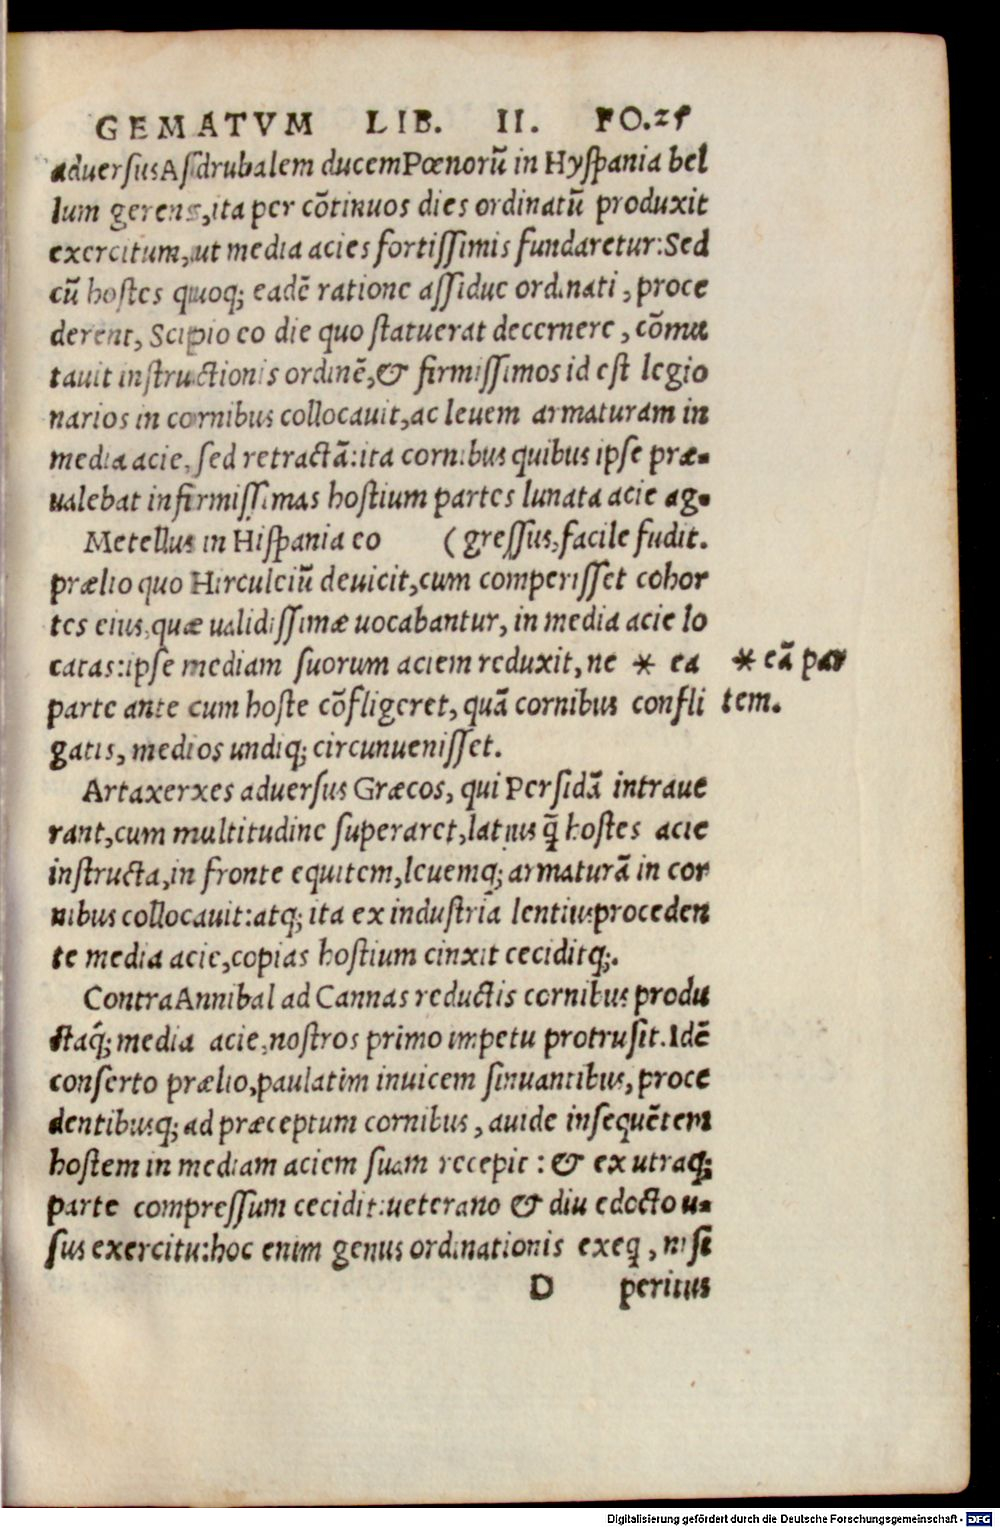 GEMATVM LIB. II. FO.25
aduersus Asdrubalem ducem Pœnorū in Hyspania bel
lum gerens, ita per cōtinuos dies ordinatū produxit
exercitum, ut media acies fortissimis fundaretur: Sed
cū hostes quoq; eadē ratione assidue ordinati, proce
derent, Scipio eo die quo statuerat decernere, cōmu
tauit instructionis ordinē, & firmissimos id est legio
narios in cornibus collocauit, ac leuem armaturam in
media acie, sed retractā: ita cornibus quibus ipse præ-
ualebat infirmissimas hostium partes lunata acie ag-
Metellus in Hispania eo (gressus, facile fudit.
prælio quo Hirculeiū deuicit, cum comperisset cohor
tes eius, quæ ualidissimæ uocabantur, in media acie lo
catas: ipse mediam suorum aciem reduxit, ne * ea
* eā par
parte ante cum hoste cōfligeret, quā cornibus confli
tem.
gatis, medios undiq; circunuenisset.
Artaxerxes aduersus Græcos, qui Persidā intraue
rant, cum multitudine superaret, latius q̄ hostes acie
instructa, in fronte equitem, leuemq; armaturā in cor
nibus collocauit: atq; ita ex industria lentius proceden
te media acie, copias hostium cinxit ceciditq;.
Contra Annibal ad Cannas reductis cornibus produ
ctaq́; media acie, nostros primo impetu protrusit. Idē
conserto prælio, paulatim inuicem sinuantibus, proce
dentibusq; ad præceptum cornibus, auide insequētem
hostem in mediam aciem suam recepit: & ex utraq;
parte compressum cecidit: ueterano & diu edocto u-
sus exercitu: hoc enim genus ordinationis exeq, nisi
D peritus
Digitalisierung gefördert durch die Deutsche Forschungsgemeinschaft - DFG